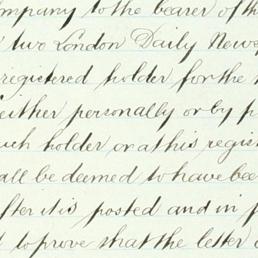 Company to the bearer of th
two London Daily News
registered holder for the
either personally or by p
uch holder or at his regist
all be deemed to have bee
fter it is posted and in p
to prove that the letter